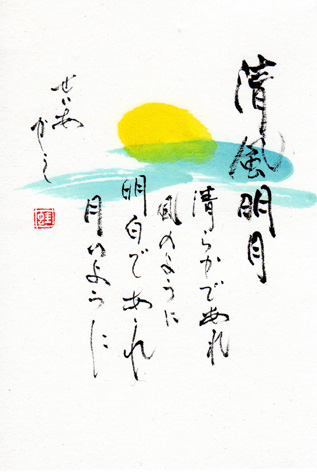 清風明月
清らかであれ
風のように
明白であれ
月のように